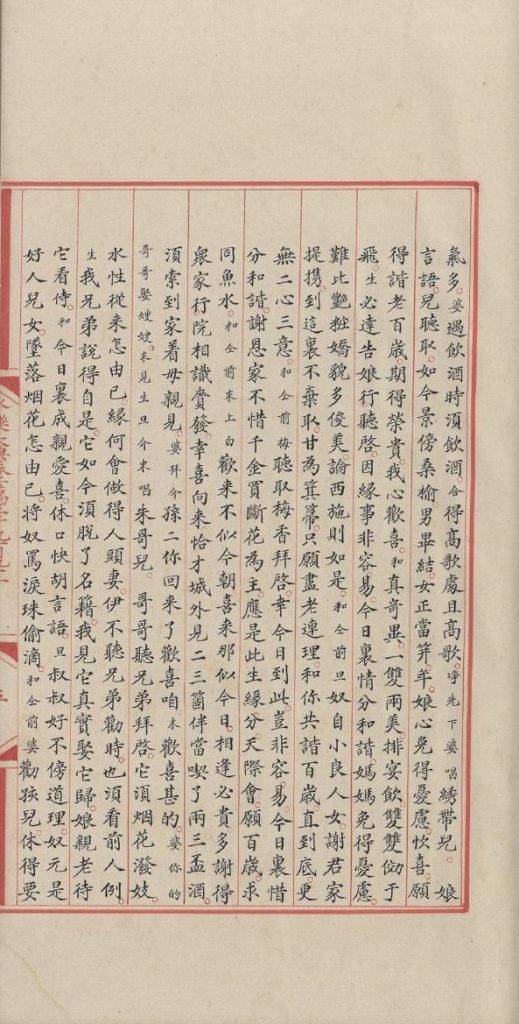 氣多婆遇飲酒時須飲酒合得高歌處且高歌淨先下婆唱綉帶兒娘
言語兒聽取如今景傍桑榆男畢結女正當筓年娘心免得憂慮忺喜願
得諧老百歲期得榮貴我心歡喜和真奇異一雙兩美排宴飲雙雙劬于
飛生必達告娘行聽啓因緣事非容易今日裏情分和諧媽媽免得憂慮
難比艷粧嬌貌多俊美論西施則如是和仝前旦奴自小良人女謝君家
提携到這裏不棄取甘為箕箒只願盡老連理和你共諧百歲直到底更
無二心三意和仝前梅聽取梅香拜啓幸今日到此豈非容易今日裏惜
分和諧謝恩家不惜千金買斷花為主應是此生緣分天際會願百歲求
同魚水和仝前末上白歡來不似今朝喜來那似今日相逢必貴多謝得
衆家行院相識賫發幸喜向來恰才城外見二三箇伴當喫了兩三盃酒
須索到家着母親見婆拜介孫二你回來了歡喜咱末歡喜甚的婆你的
哥哥娶嫂嫂末見生旦介末唱朱哥兒哥哥聽兄弟拜啓它須烟花潑妓
水性從來怎由已緣何會做得人頭妻伊不聽兄弟勸時也須看前人例
生我兄弟說得自是它如今須脫了名籍我見它真實娶它歸娘親老待
它看侍和今日裏成親愛喜休口快胡言語旦叔叔好不傍道理奴元是
好人兒女墜落烟花怎由已將奴罵淚珠偷滴和仝前婆勸孩兒休得要